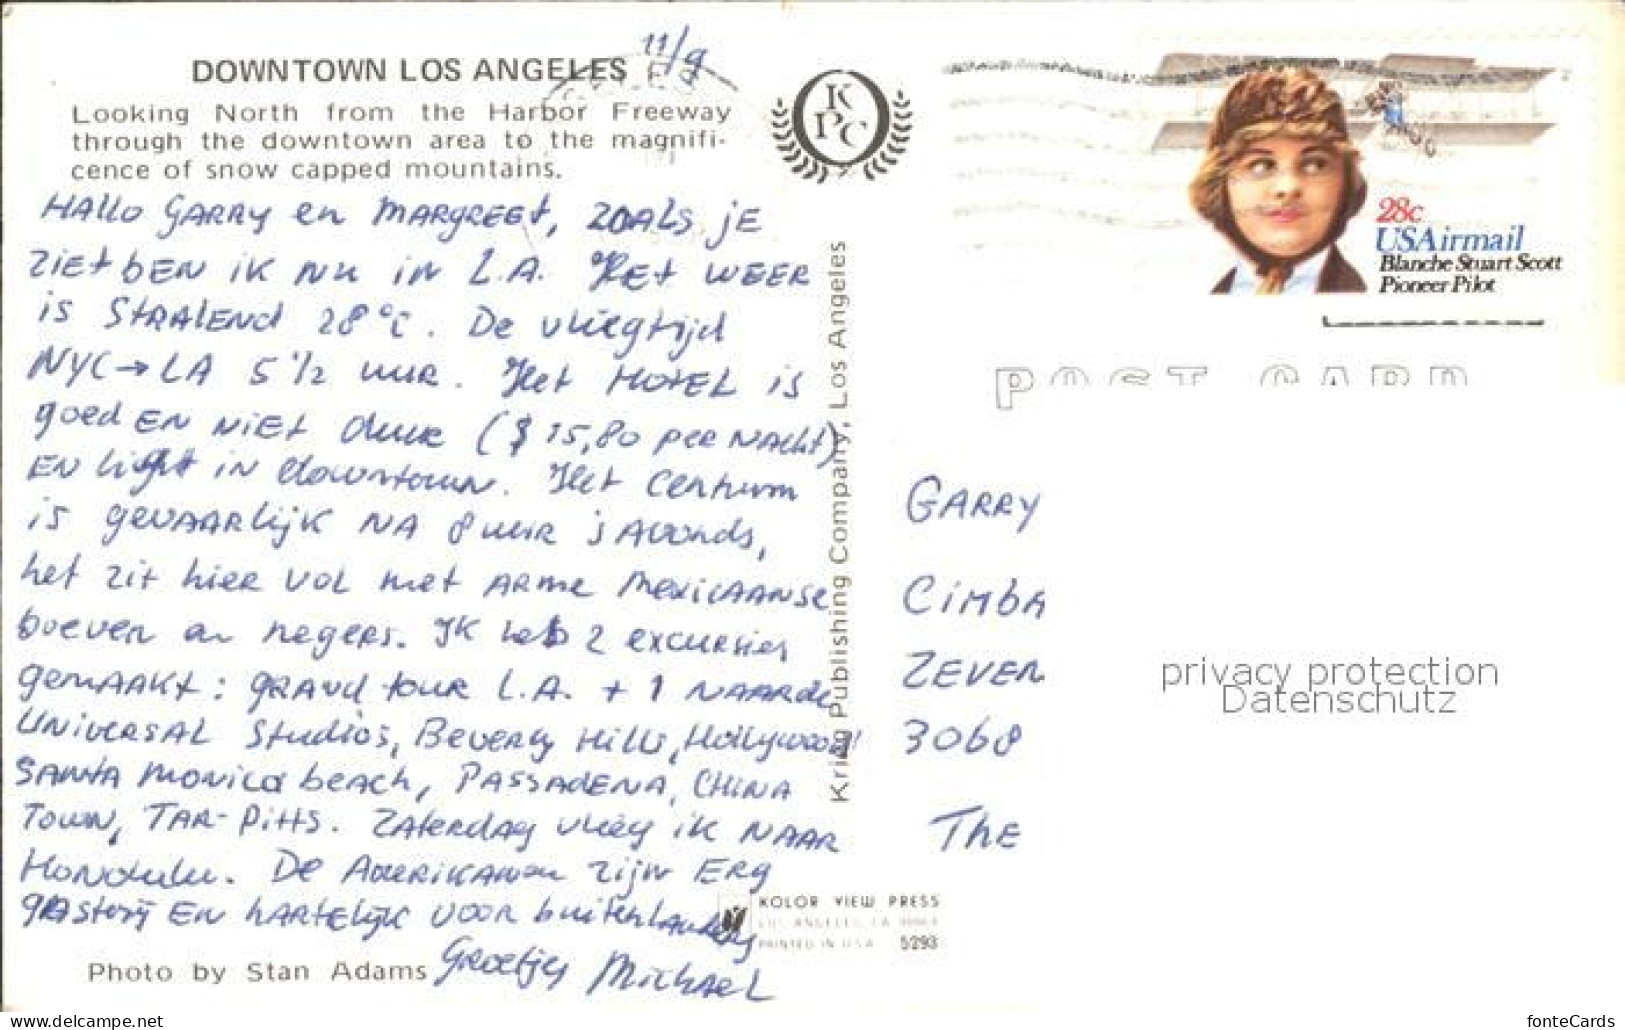 11/9
DOWNTOWN LOS ANGELES
Looking North from the Harbor Freeway
through the downtown area to the magnifi-
cence of snow capped mountains.
HALLO GARRY en MARGREET, ZOALS JE
ZIET BEN IK NU IN L.A. HET WEER
is STRALEND 28°C. De vliegtijd
NYC→LA 5 1/2 uur. Het HOTEL is
goed EN NIET duur ($ 15,80 per NACHT)
EN ligt in downtown. Het Centrum
is gevaarlijk NA 8 uur 's Avonds,
het zit hier vol met ARME MEXICAANSE
boeven en negers. IK heb 2 excursies
gemaakt: GRAND tour L.A. + 1 NAAR de
UNIVERSAL Studios, Beverly Hills, Hollywood
SANTA MONICA beach, PASSADENA, CHINA
Town, TAR-PITTS. Zaterdag vlieg ik NAAR
Honolulu. De AMERIKANEN zijn ERG
gastvrij EN hartelijk voor buitenlanders
Groetjes Michael
Photo by Stan Adams
K
P C
Kring Publishing Company, Los Angeles
KOLOR VIEW PRESS
LOS ANGELES, CA
PRINTED IN U.S.A. 5293
28c
USAirmail
Blanche Stuart Scott
Pioneer Pilot
POST CARD
GARRY
CIMBA
ZEVEN
3068
THE
privacy protection
Datenschutz
https://www.delcampe.net
fonteCards